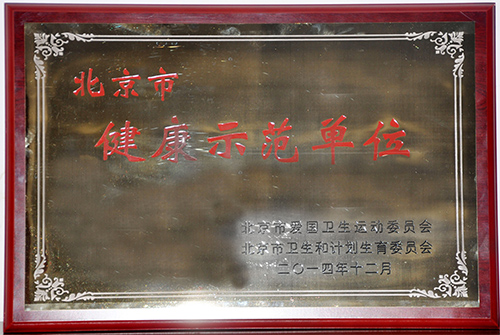 北京市
健康示范单位
北京市爱国卫生运动委员会
北京市卫生和计划生育委员会
二〇一四年十二月